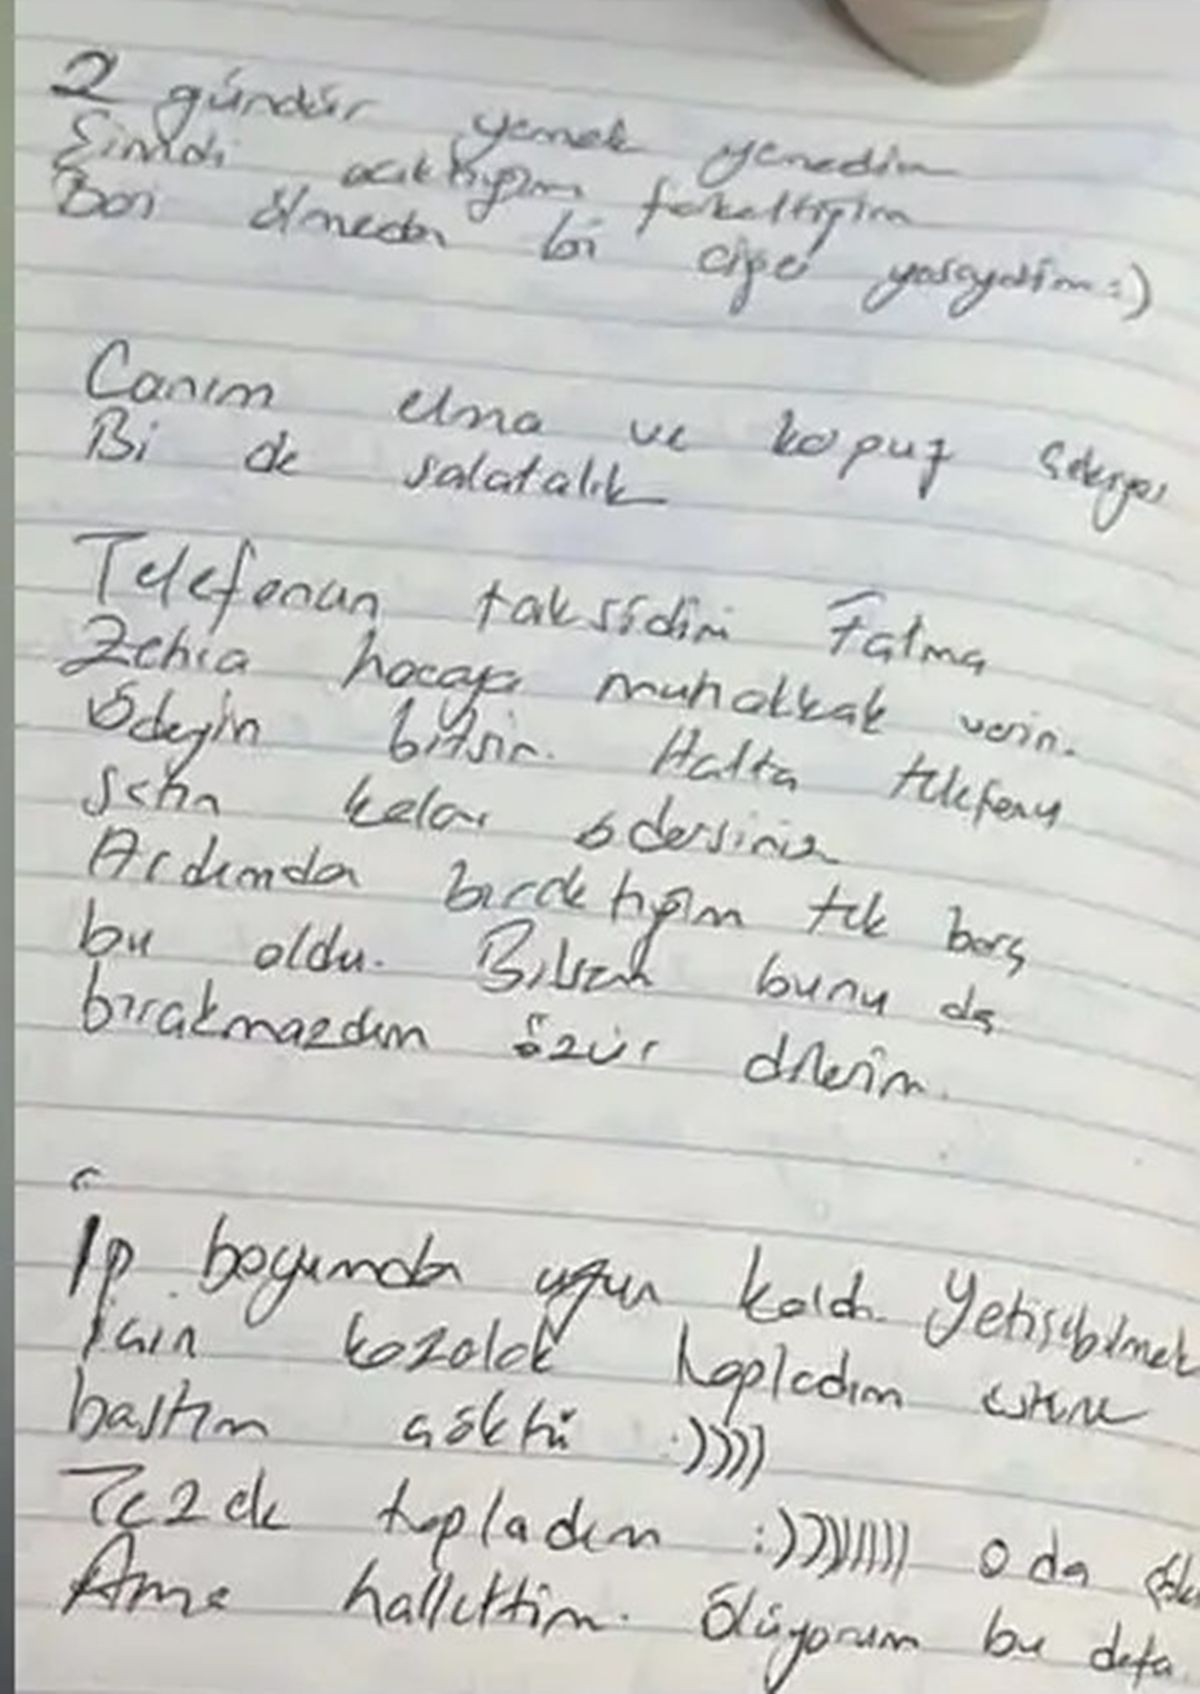 2 gündür yemek yemedim
Şimdi acıktığımı farkettiğim
Bari ölmeden bi çişe yasaydım :)
Canım elma ve kapuz çekiyor
Bi de salatalık
Telefonun taksidini Fatma
Zehra hocaya muhakkak verin.
Ödeyin bitsin. Hatta telefonu
satın kalanı ödersiniz
Ardımdan bıraktığım tek borç
bu oldu. Bilsem bunu da
bırakmazdım özür dilerim.
İp boyumdan uzun kaldı. Yetişebilmek
İçin kozalak topladım üstüne
bastım çöktü :))))
Tezek topladım :))))))))) o da
Ama hallettim. Ölüyorum bu defa.